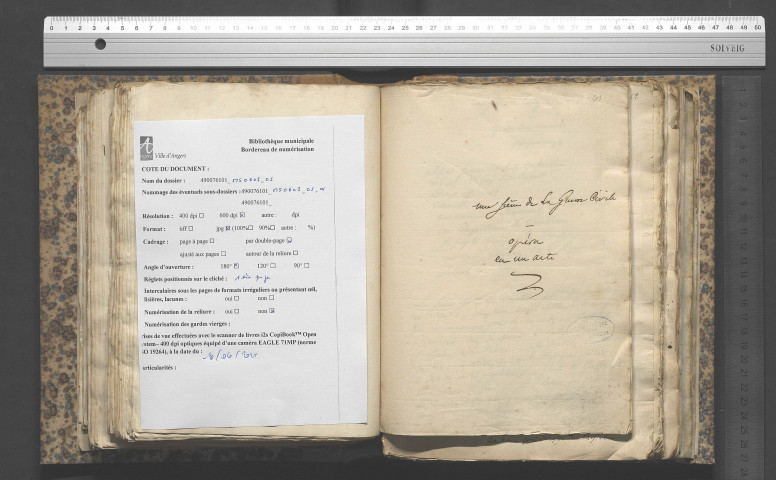 0 1 2 3 4 5 6 7 8 9 10 11 12 13 14 15 16 17 18 19 20 21 22 23 24 25 26 27 28 29 30 31 32 33 34 35 36 37 38 39 40 41 42 43 44 45 46 47 48 49 50
Ville d'Angers
Bibliothèque municipale
Bordereau de numérisation
COTE DU DOCUMENT :
Nom du dossier : 490076101_
Nommage des éventuels sous-dossiers :490076101_
490076101_
Résolution : 400 dpi 600 dpi autre : dpi
Format : tiff jpg (100% 90% autre : %)
Cadrage : page à page par double-page
ajusté aux pages autour de la reliure
Angle d'ouverture : 180° 120° 90°
Réglets positionnés sur le cliché :
Intercalaires sous les pages de formats irréguliers ou présentant
lisières, lacunes : oui non
Numérisation de la reliure : oui non
Numérisation des gardes vierges :
rises de vue effectuées avec le scanner de livres i2s CopiBook™ Open
ystem– 400 dpi optiques équipé d'une caméra EAGLE 71MP (norme
SO 19264), à la date du :
articularités :
une scène de la Guerre Civile
—
opéra
en un acte